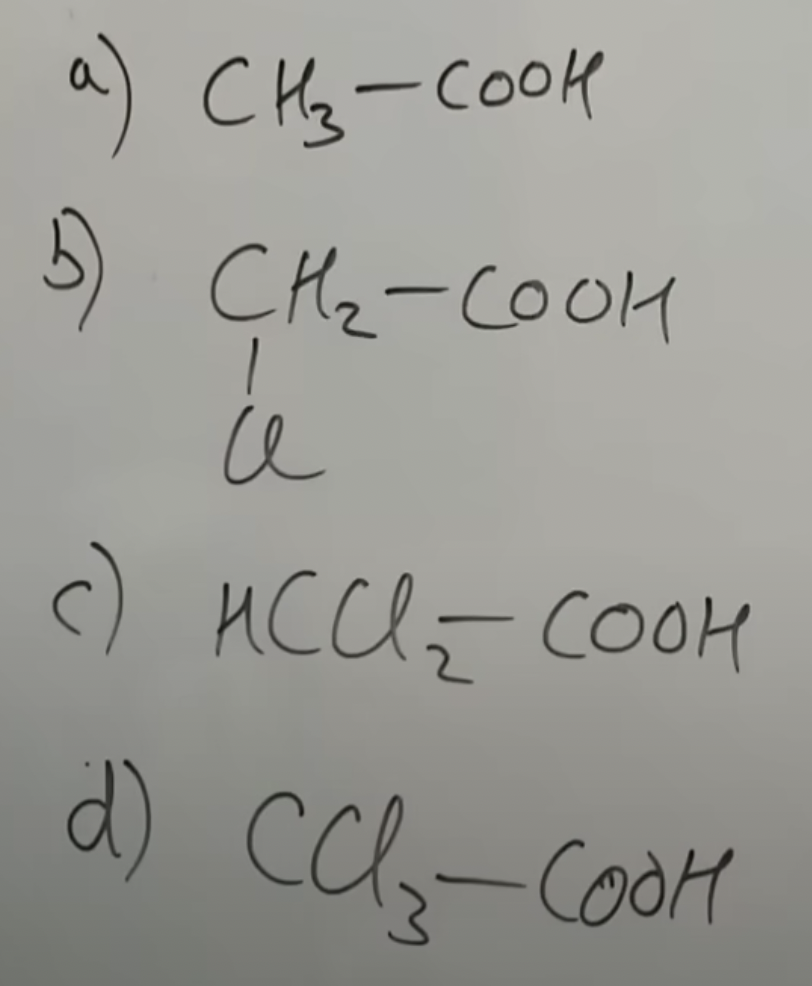 a) CH₃–COOH
b) CH₂–COOH
|
Cl
c) HCCl₂–COOH
d) CCl₃–COOH